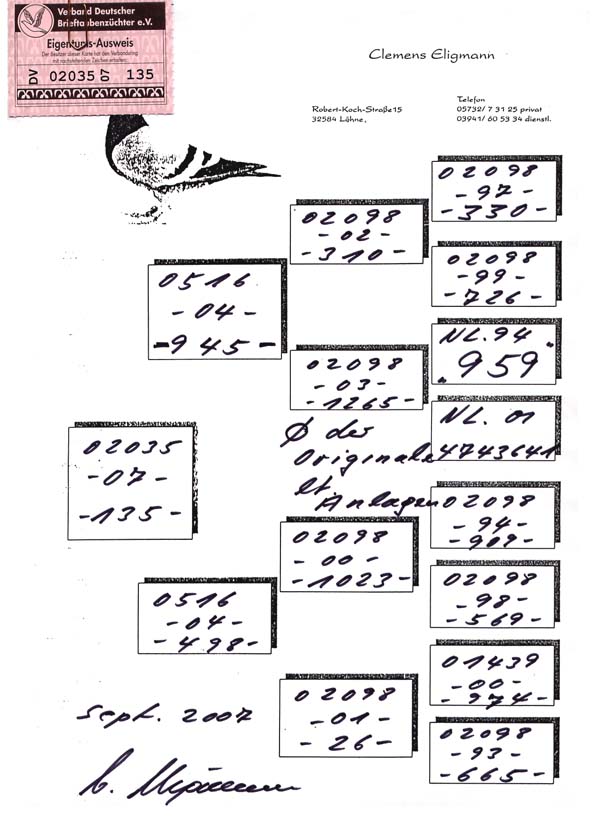 Verband Deutscher
Brieftaubenzüchter e.V.
Eigentums-Ausweis
Der Besitzer dieser Karte hat den Verbandsring
mit nachstehenden Zeichen erhalten:
DV 02035 07 135
Clemens Eligmann
Robert-Koch-Straße 15
32584 Löhne,
Telefon
05732/ 7 31 25 privat
03941/ 60 53 34 dienstl.
02098
- 97 -
- 330 -
02098
- 02 -
- 310 -
02098
- 99 -
- 726 -
0516
- 04 -
- 945 -
NL. 94
"959"
02098
- 03 -
- 1265 -
NL. 01
4743641
Ø der
Originale
lt.
Anlagen
02035
- 07 -
- 135 -
02098
- 94 -
- 909 -
02098
- 00 -
- 1023 -
02098
- 98 -
- 569 -
0516
- 04 -
- 498 -
01439
- 00 -
- 974 -
02098
- 01 -
- 26 -
02098
- 93 -
- 665 -
Sept. 2007